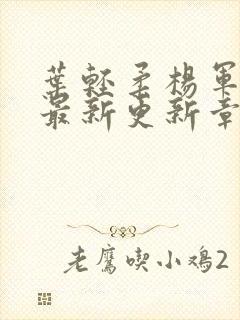 葉輕柔楊軍
最新更新章
老鷹喫小鸡2